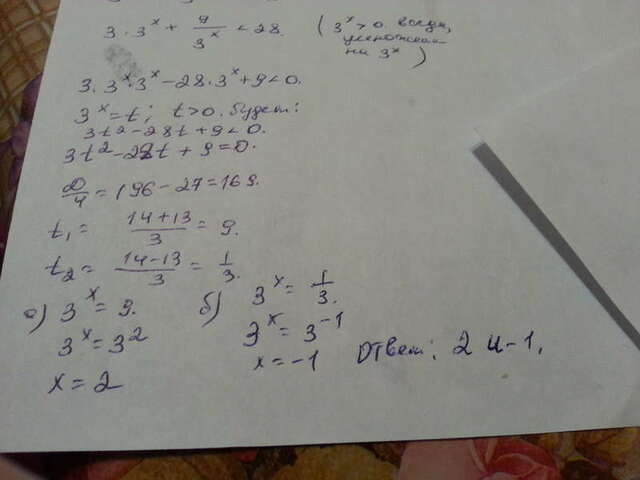 3 · 3^x + 9/3^x < 28. (3^x > 0. всегда,
умножаем
на 3^x)
3 · 3^x · 3^x − 28 · 3^x + 9 < 0.
3^x = t; t > 0. будет:
3t² − 28t + 9 < 0.
3t² − 28t + 9 = 0.
D/4 = 196 − 27 = 169.
t₁ = (14 + 13)/3 = 9.
t₂ = (14 − 13)/3 = 1/3.
а) 3^x = 9.
3^x = 3²
x = 2
б) 3^x = 1/3.
3^x = 3^−1
x = −1
Ответ: 2 и −1.